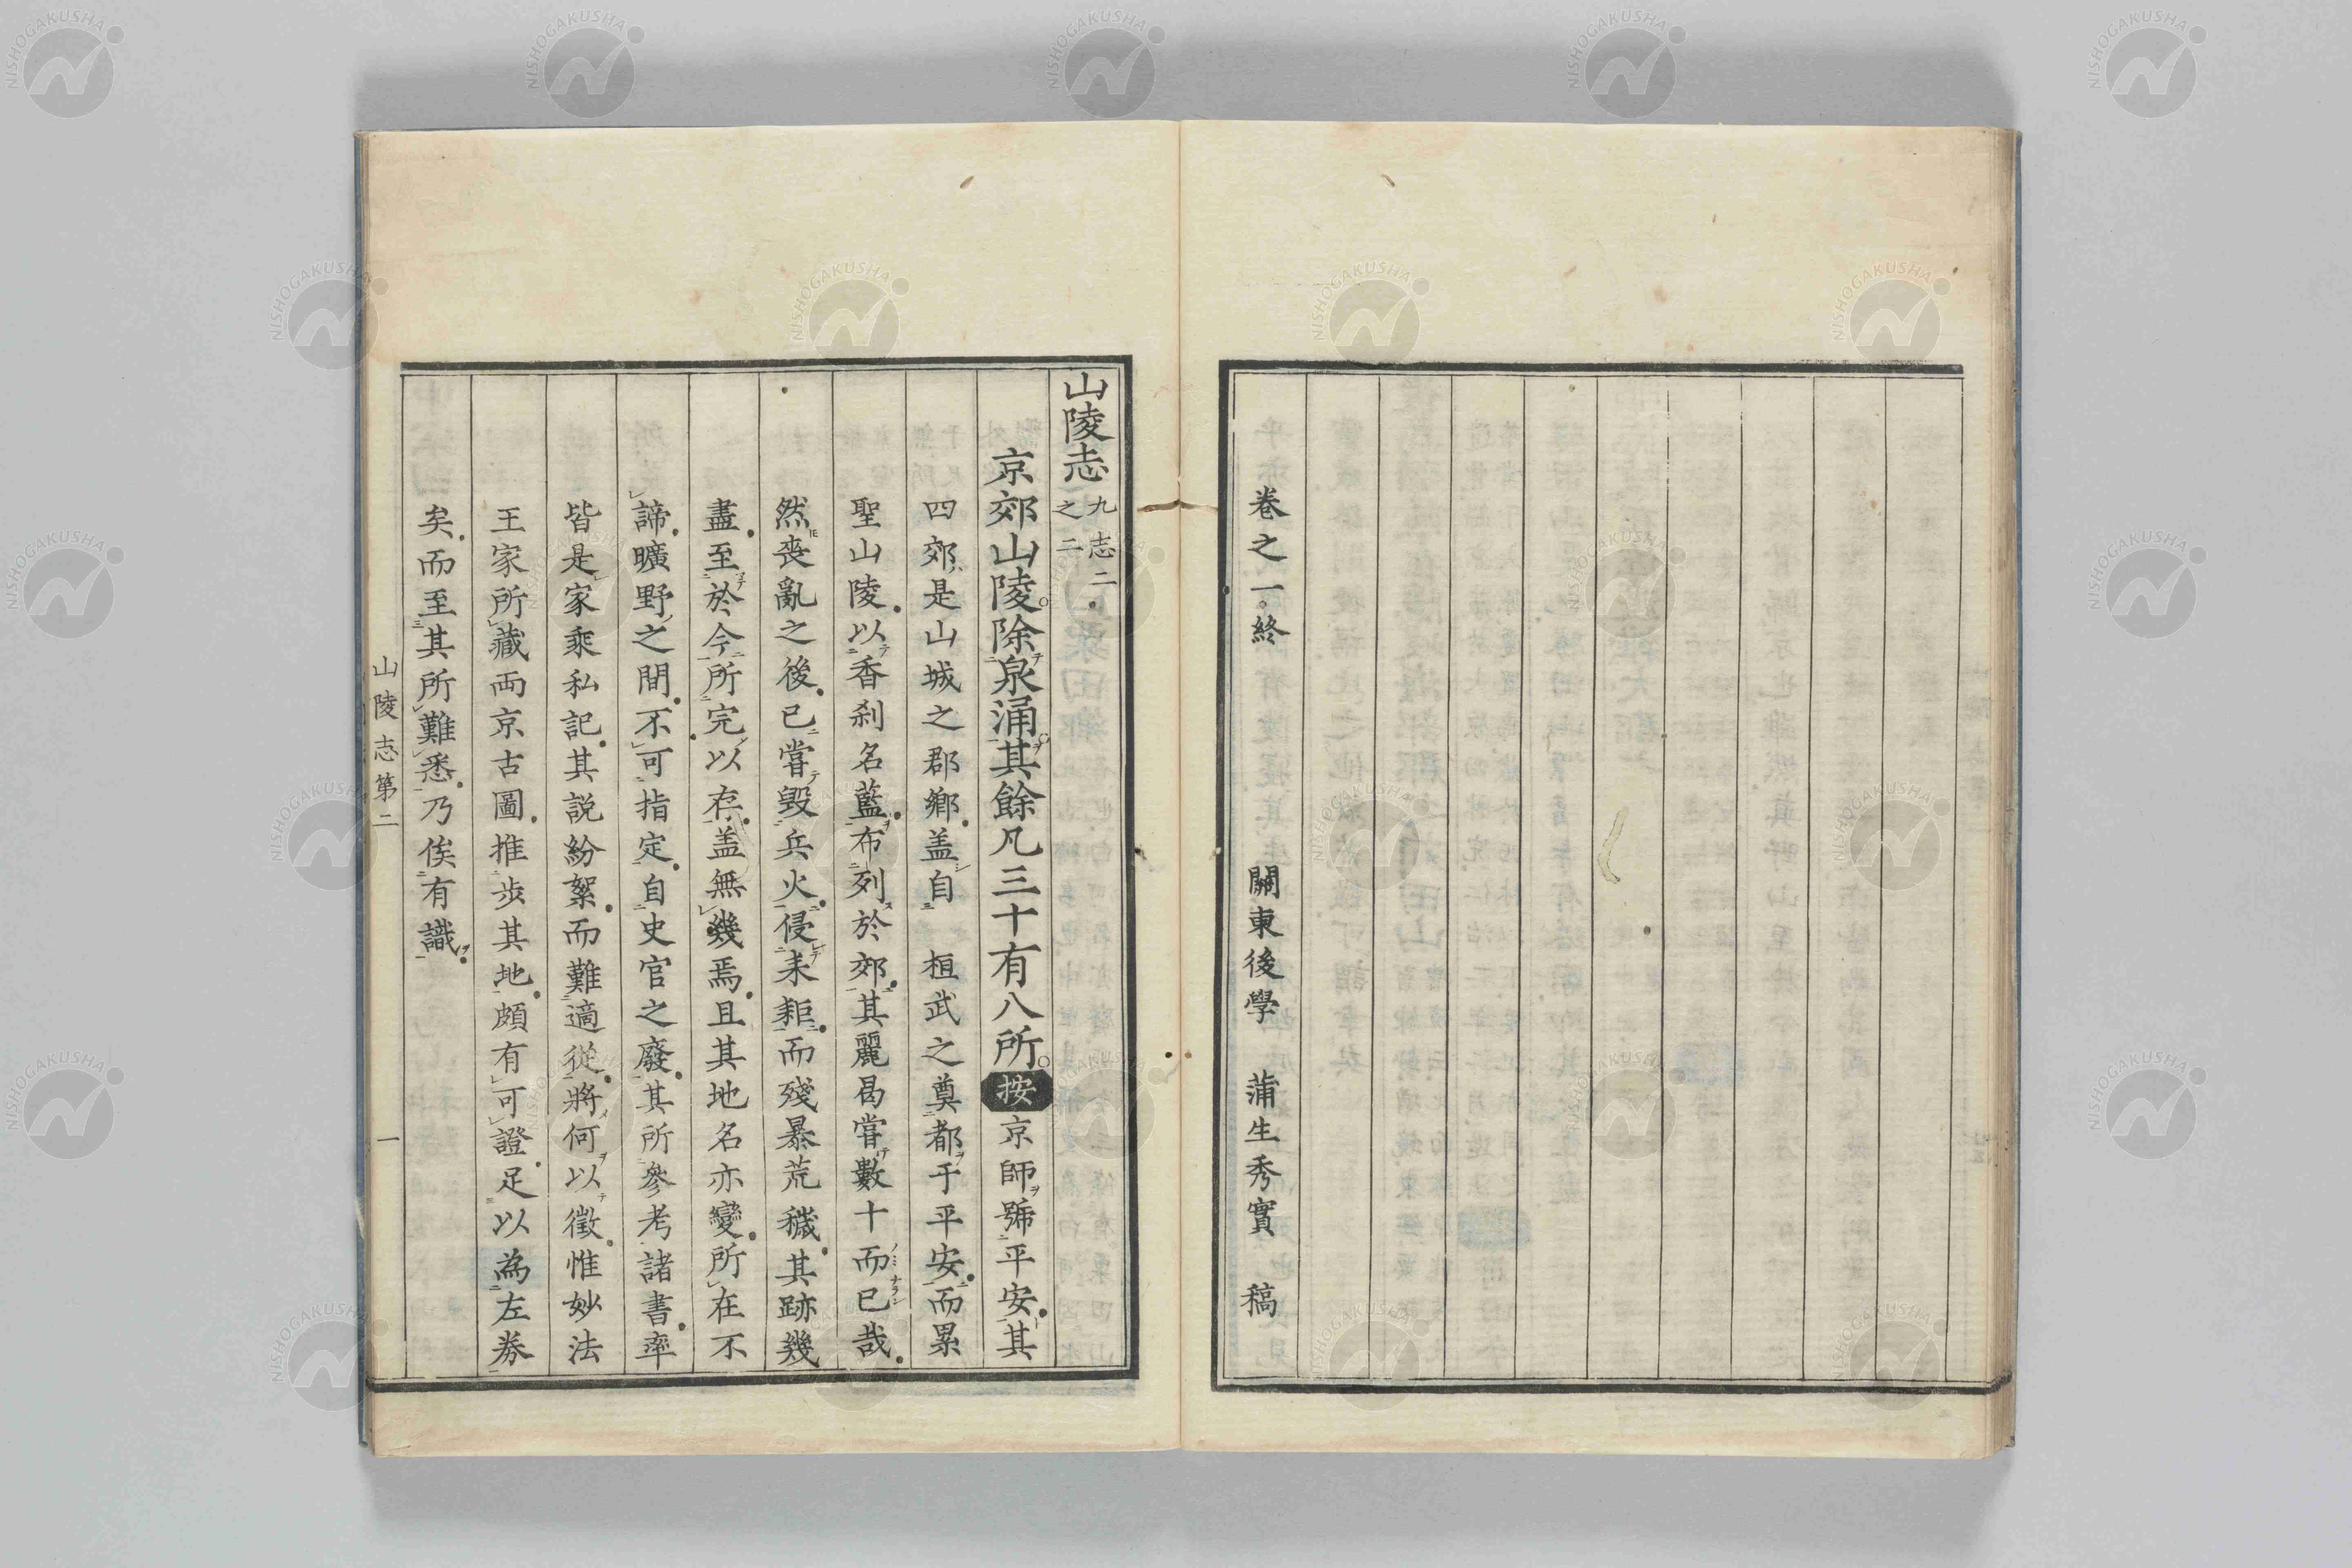 卷之一終　關東後學　蒲生秀實　稿
山陵志九志二之二
京郊山陵除泉涌其餘凡三十有八所按京師號平安其
四郊是山城之郡鄉盖自　桓武之奠都于平安而累
聖山陵以香刹名藍布列於郊其麗曷嘗數十而已哉
然喪亂之後已嘗毀兵火侵耒耟而殘暴荒穢其跡幾
盡至於今所完以存盖無幾焉且其地名亦變所在不
諦曠野之間不可指定自史官之廢其所參考諸書率
皆是家乘私記其説紛絮而難適從將何以徵惟妙法
王家所藏両京古圖推步其地頗有可證足以為左券
矣而至其所難悉乃俟有識
山陵志第二　一
NISHOGAKUSHA